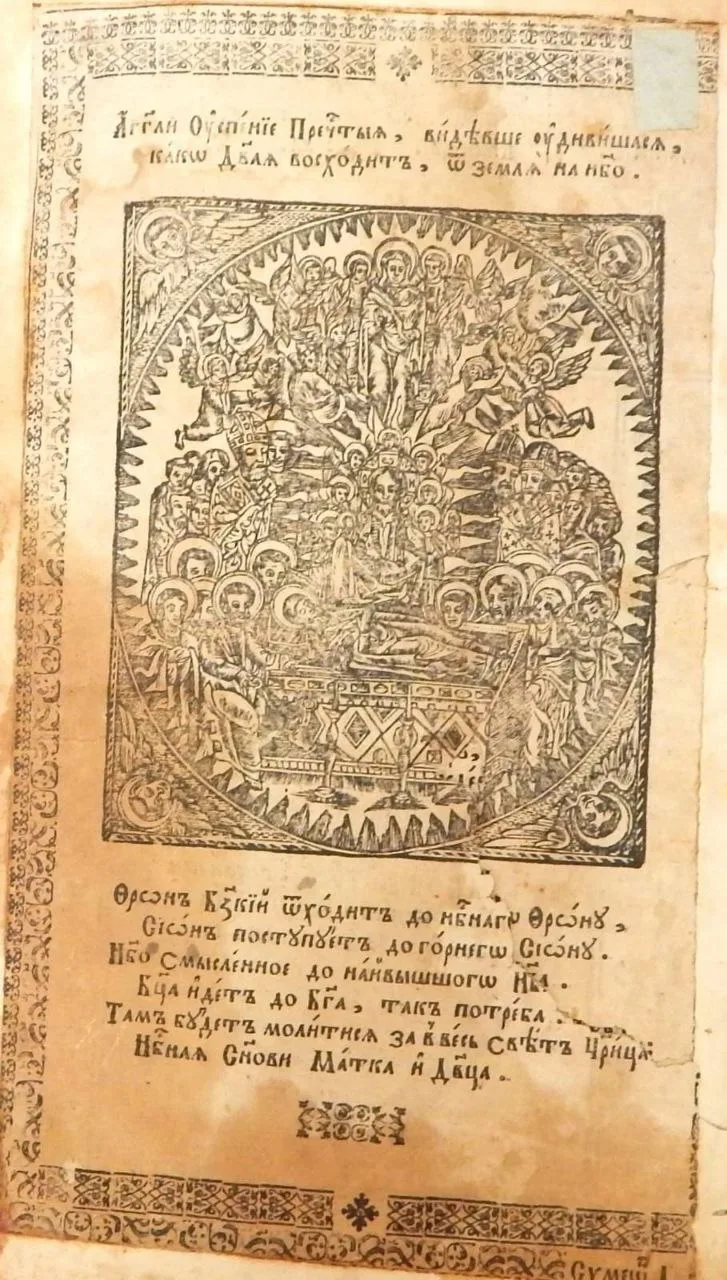 А҆́гг҃ли Оу҆спе́нїе Пречⷭ҇тыѧ, ви́дѣвше оу҆диви́шасѧ,
ка́кѡ Дв҃аѧ восхо́дитъ, ѿ землѧ̀ на нб҃о.
Ѳрѡнъ Бз҃кїй ѿхо́дитъ до нбⷭ҇нагѡ Ѳрѡ́нꙋ,
Сїѡ́нъ постꙋпꙋетъ до го́рнегѡ Сїѡ́нꙋ.
Нб҃о смысле́нное до на́йвышшогѡ Нб҃а.
Бц҃а и҆де́тъ до Бг҃а, такъ потре́ба.
Тамъ бꙋ́детъ моли́тисѧ за в̾ве́сь свѣ́тъ Цр҃и́ца
Нбⷭ҇наѧ Сн҃ови Ма́тка и҆ Дв҃ца.